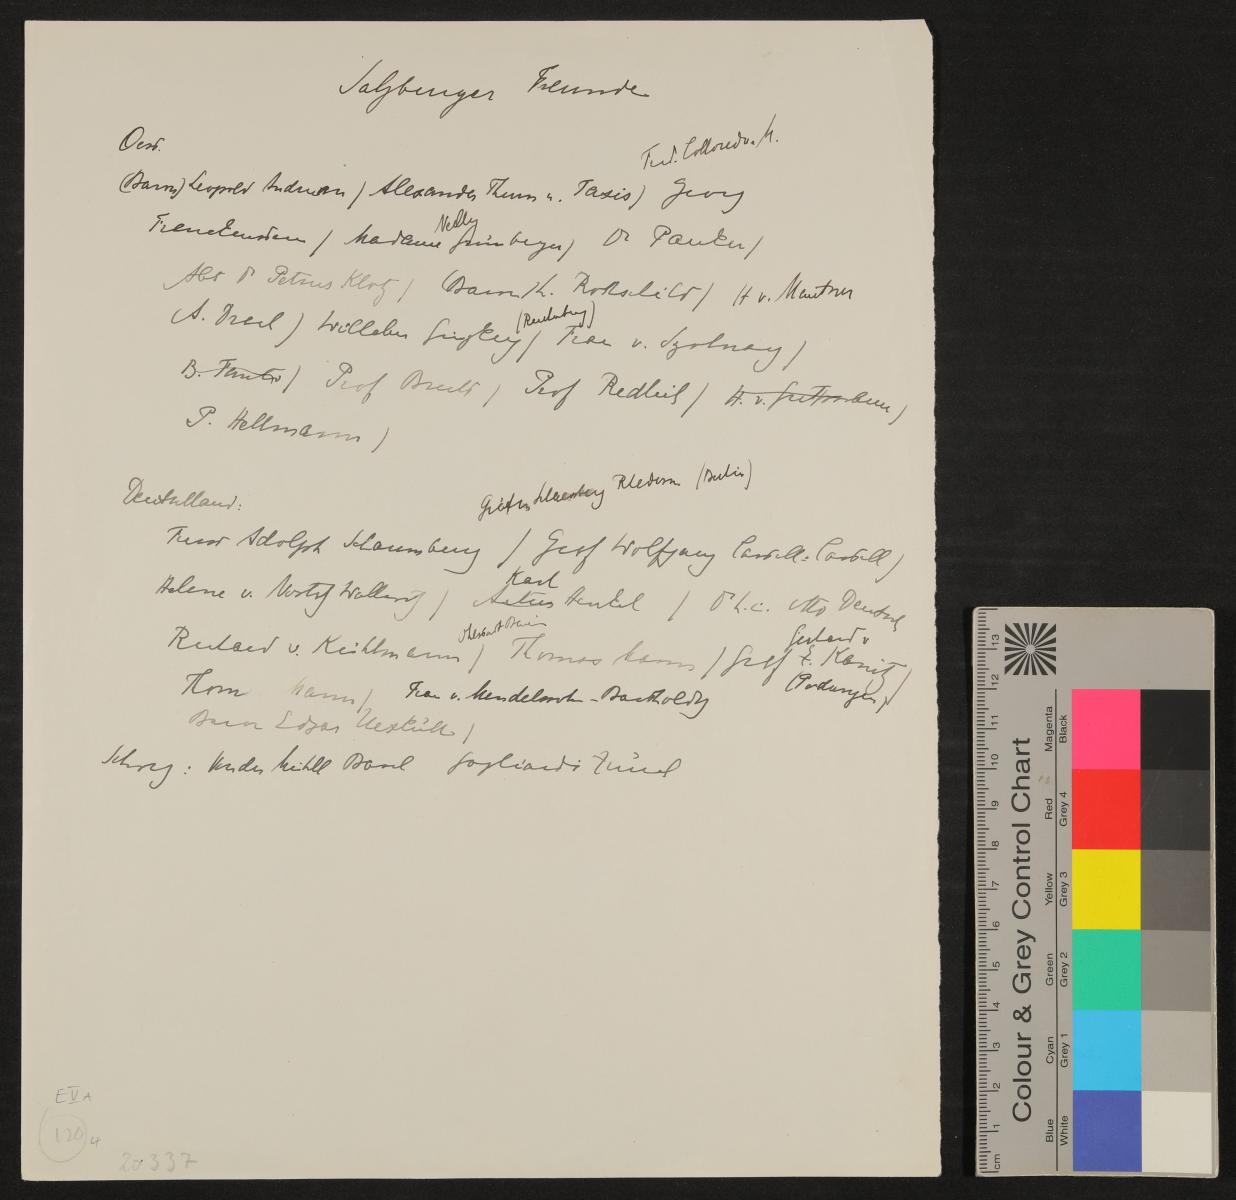 Salzburger Freunde
Oest.
Ferd. Colloredo M.
(Baron) Leopold Andrian / Alexander Thurn u. Taxis) Georg
Nelly
Franckenstein / Madame Grünberger / Dr Pauker /
Abt Dr Petrus Klotz / Baron L. Rothschild / H v. Mautner
(Reichenberg)
A. Drach / Willibes Ginzkey / Frau v. Szolnay /
B. Fantis / Prof Brecht / Prof Redlich / H. v.
P. Hellmann /
Deutschland:
Gräfin Rhedern (Berlin)
Fürst Adolph Schaumburg / Graf Wolfgang Castell-Castell /
Karl
Helene v. Nostitz Wallwitz / Henkel / D h. c. Otto Deutsch
Gerhard v
Richard v. Kühlmann / Thomas Mann / Graf E. Kanitz /
(Podangen)
Thom Mann / Frau v. Mendelssohn-Bartholdy
Baron Edgar Uexküll /
Schweiz: Vonder Mühll Basel Gagliardi Zürich
E V A
120 4
20337
Colour & Grey Control Chart
Blue Cyan Green Yellow Red Magenta
White Grey 1 Grey 2 Grey 3 Grey 4 Black
cm 1 2 3 4 5 6 7 8 9 10 11 12 13